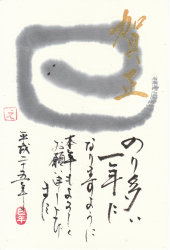 賀正
のり多い
一年に
なりますように
本年もよろしく
お願い申し上げ
ます
平成二十五年